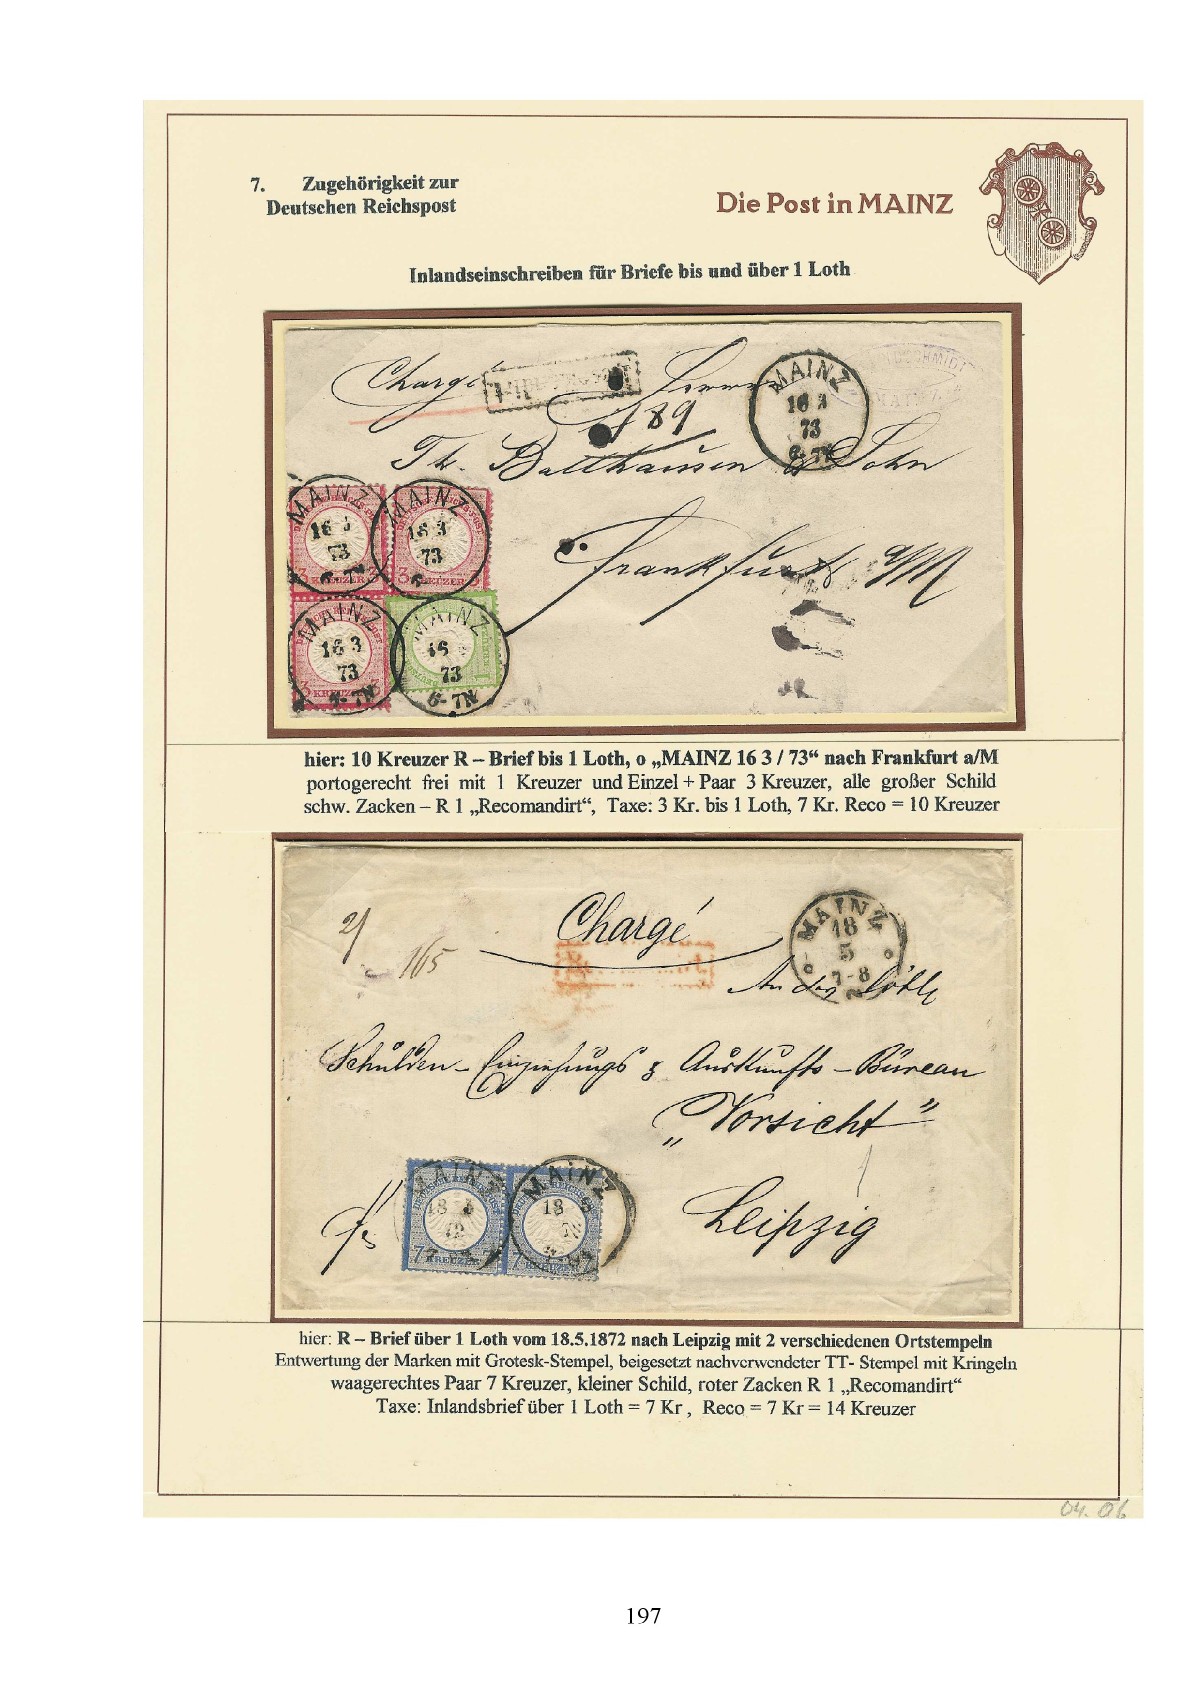 7. Zugehörigkeit zur
Deutschen Reichspost
Die Post in MAINZ
Inlandseinschreiben für Briefe bis und über 1 Loth
Chargé
Herrn
MAINZ
16 3
73
6-7N
MAINZ
189
Th. Balthausen & Sohn
Frankfurt a/M
MAINZ
16 3
73
6-7N
3 KREUZER 3
MAINZ
16 3
73
6-
3 KREUZER
MAINZ
16 3
73
6-7N
3 KREUZER 3
MAINZ
16 3
73
6-7N
1
hier: 10 Kreuzer R – Brief bis 1 Loth, o „MAINZ 16 3 / 73“ nach Frankfurt a/M
portogerecht frei mit 1 Kreuzer und Einzel + Paar 3 Kreuzer, alle großer Schild
schw. Zacken – R 1 „Recomandirt“, Taxe: 3 Kr. bis 1 Loth, 7 Kr. Reco = 10 Kreuzer
Chargé
2/
165
MAINZ
18
5
7-8
An das löbl.
Schulden-Einziehungs & Auskunfts-Büreau
„Vorsicht“
Leipzig
MAINZ
18 5
72
7 KREUZER
MAINZ
18 5
7 KREUZER
hier: R – Brief über 1 Loth vom 18.5.1872 nach Leipzig mit 2 verschiedenen Ortstempeln
Entwertung der Marken mit Grotesk-Stempel, beigesetzt nachverwendeter TT- Stempel mit Kringeln
waagerechtes Paar 7 Kreuzer, kleiner Schild, roter Zacken R 1 „Recomandirt“
Taxe: Inlandsbrief über 1 Loth = 7 Kr , Reco = 7 Kr = 14 Kreuzer
04. 06
197